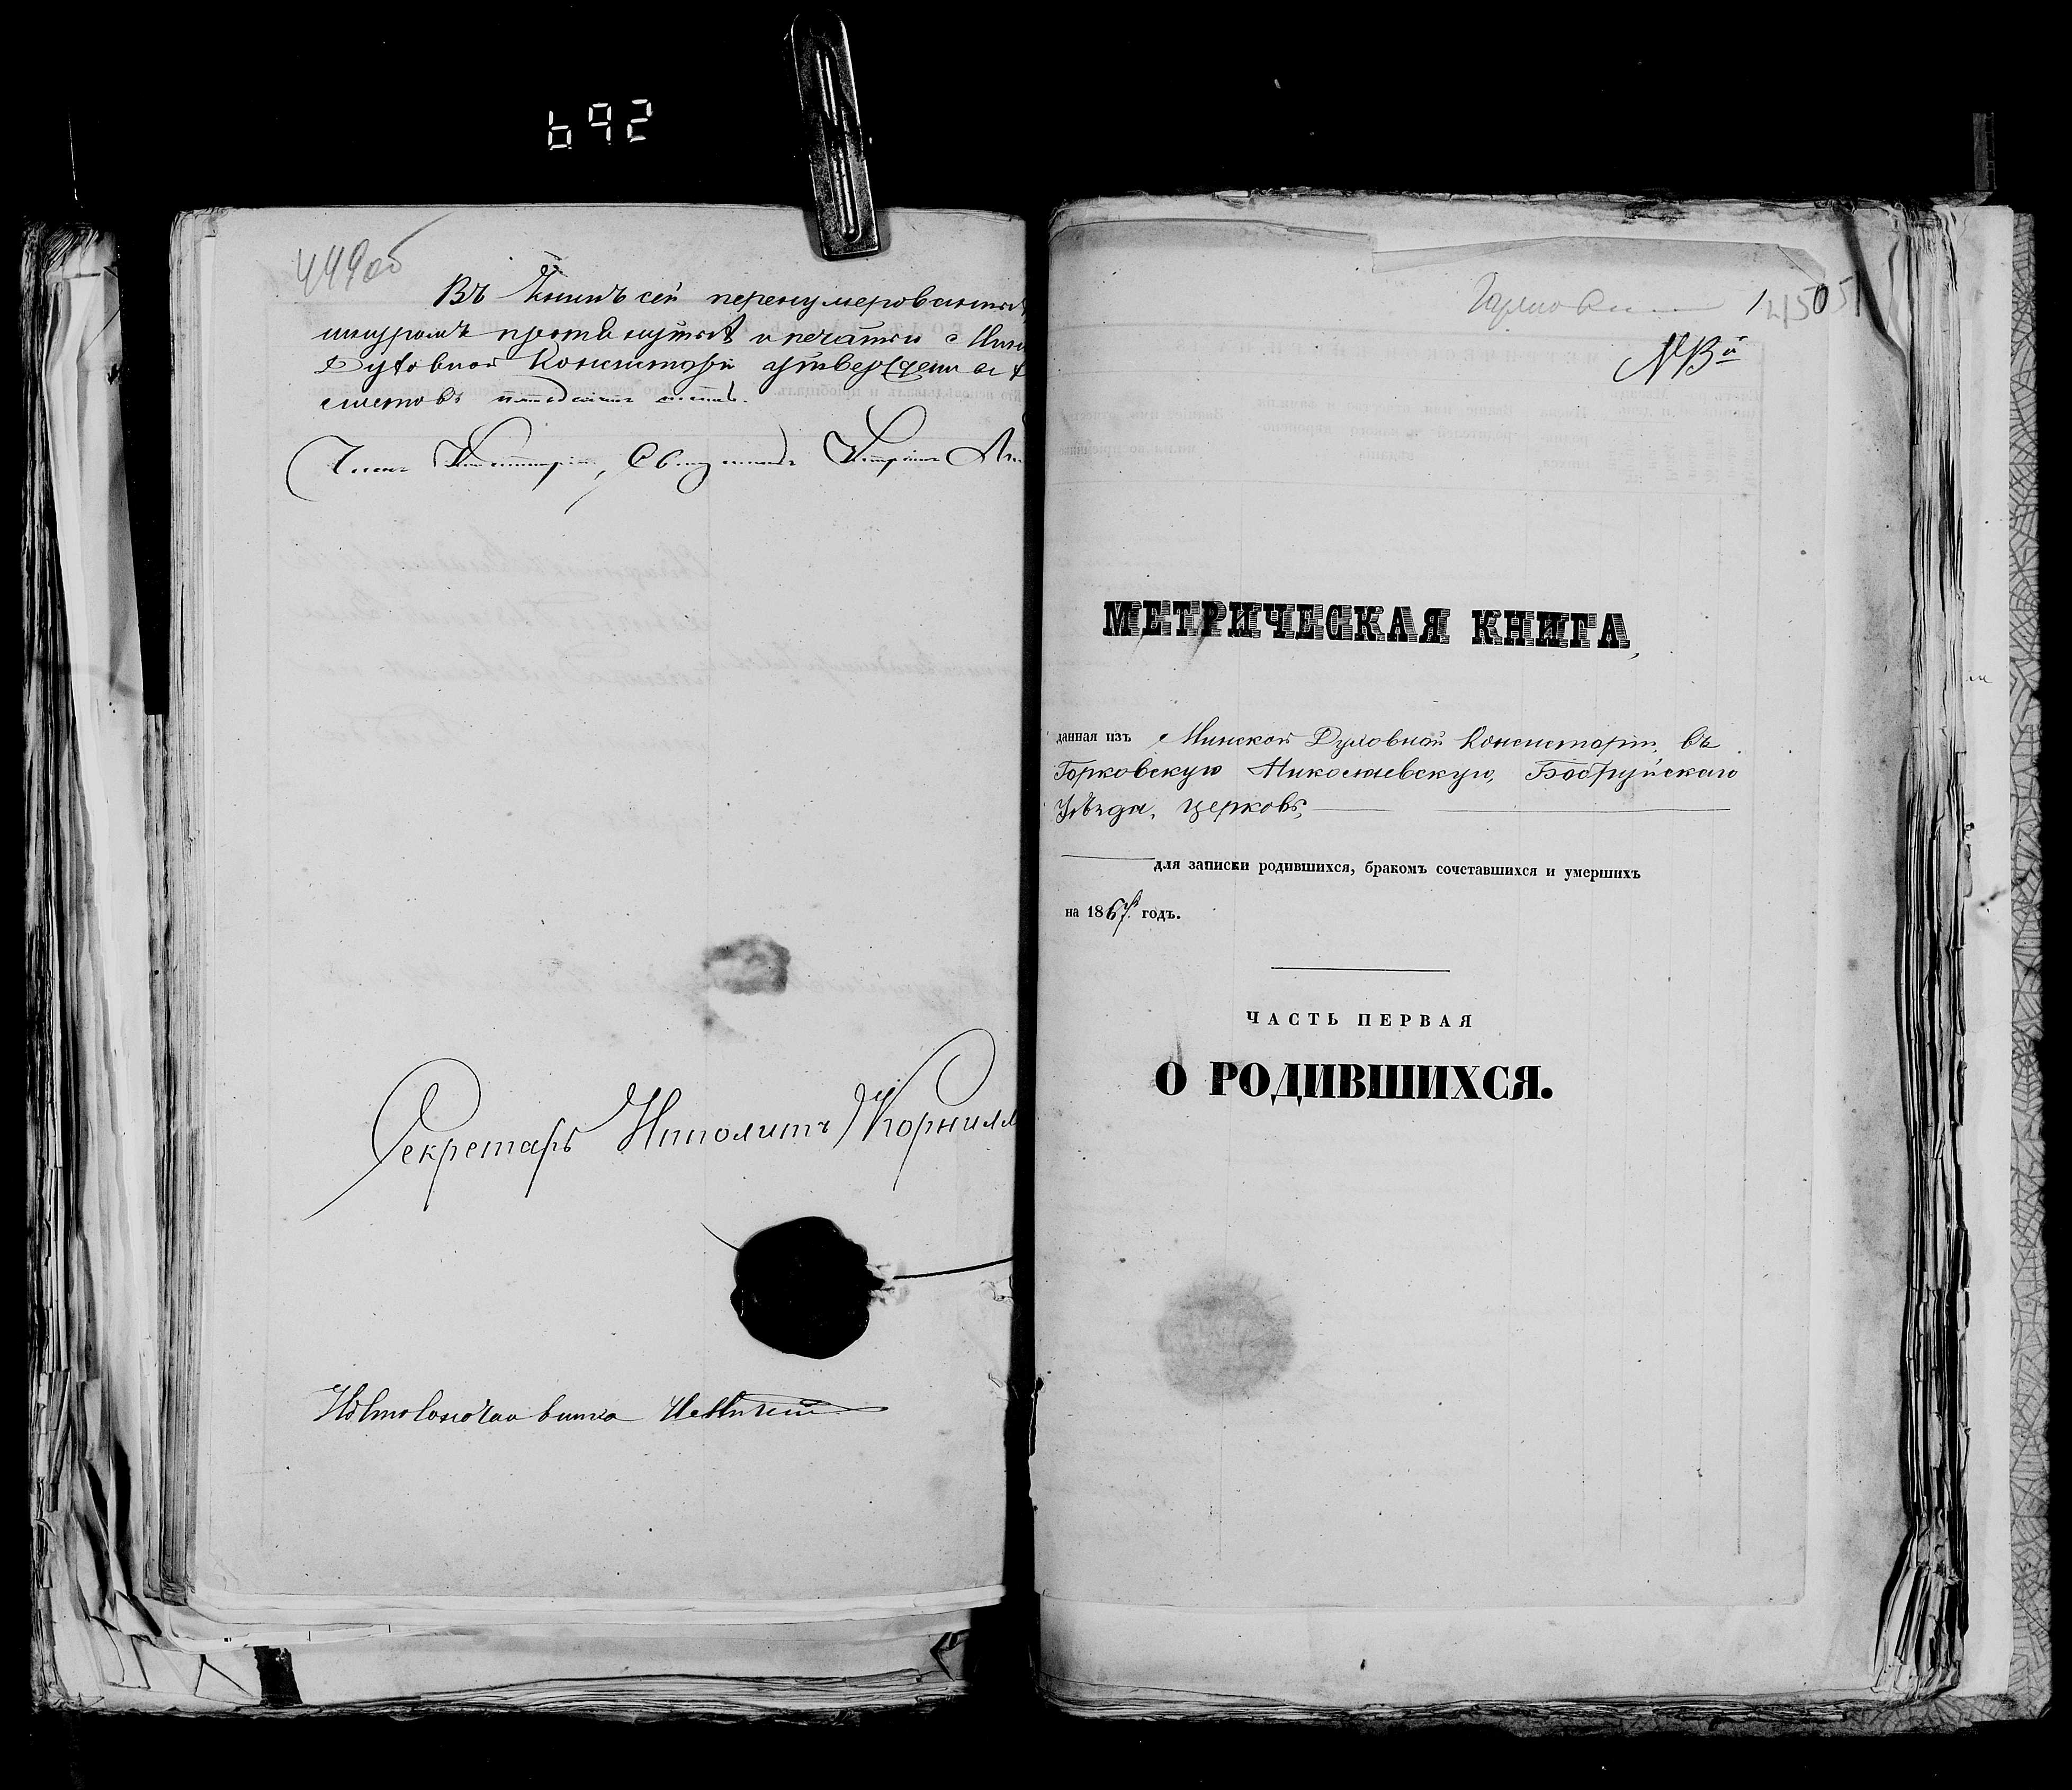 692
449об
Въ книгѣ сей перенумерованныхъ,
шнуромъ протянутыхъ и печатью Минс
Духовной Консисторіи утвержденныхъ
листовъ пятьдесятъ шесть.
Членъ Консисторіи, Священникъ
Секретарь Ипполитъ Корнил
450
МЕТРИЧЕСКАЯ КНИГА,
данная изъ Минской Духовной Консисторіи, въ
Горковскую Николаевскую, Бобруйскаго
Уѣзда, церковь,
для записки родившихся, бракомъ сочетавшихся и умершихъ
на 1867й годъ.
ЧАСТЬ ПЕРВАЯ
О РОДИВШИХСЯ.